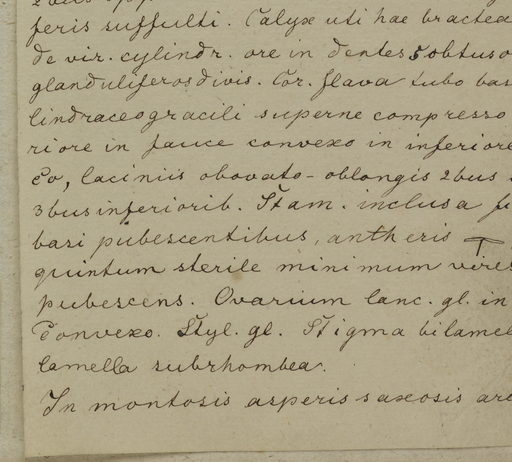 feris suffulti. Calyx uti hae bractea
de vir. cylindr. ore in dentes 5 obtuso
glanduliferos divis. Cor. flava tubo bas
lindraceo gracili superne compresso
riore in fauce convexo in inferiore
co, laciniis obovato-oblongis 2bus
3bus inferiorib. Stam. inclusa f
basi pubescentibus, antheris
quintum sterile minimum vires
pubescens. Ovarium lanc. gl. in
convexo. Styl. gl. Stigma bilamel
lamella subrhombea.
In montosis asperis saxosis are